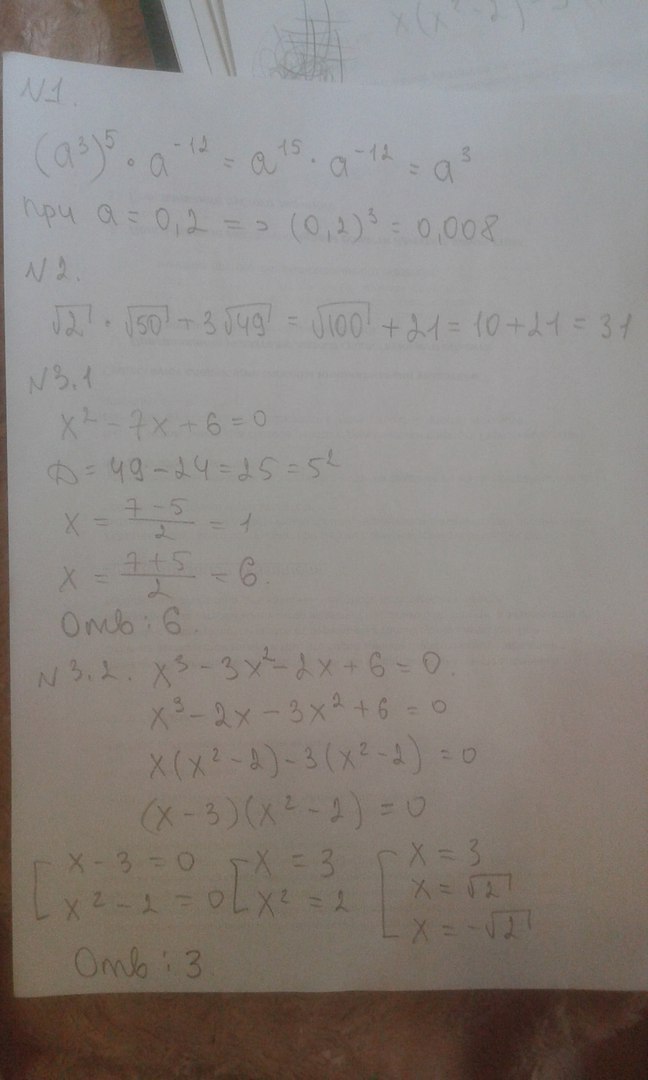 x(x²-2)
N1.
(a³)⁵ · a⁻¹² = a¹⁵ · a⁻¹² = a³
при a = 0,2 => (0,2)³ = 0,008
N2.
√2 · √50 + 3√49 = √100 + 21 = 10 + 21 = 31
N3.1
x² - 7x + 6 = 0
D = 49 - 24 = 25 = 5²
x = (7-5)/2 = 1
x = (7+5)/2 = 6.
Отв: 6.
N3.2. x³ - 3x² - 2x + 6 = 0.
x³ - 2x - 3x² + 6 = 0
x(x² - 2) - 3(x² - 2) = 0
(x - 3)(x² - 2) = 0
[ x - 3 = 0 [ x = 3 [ x = 3
x² - 2 = 0 x² = 2 x = √2
x = -√2
Отв: 3